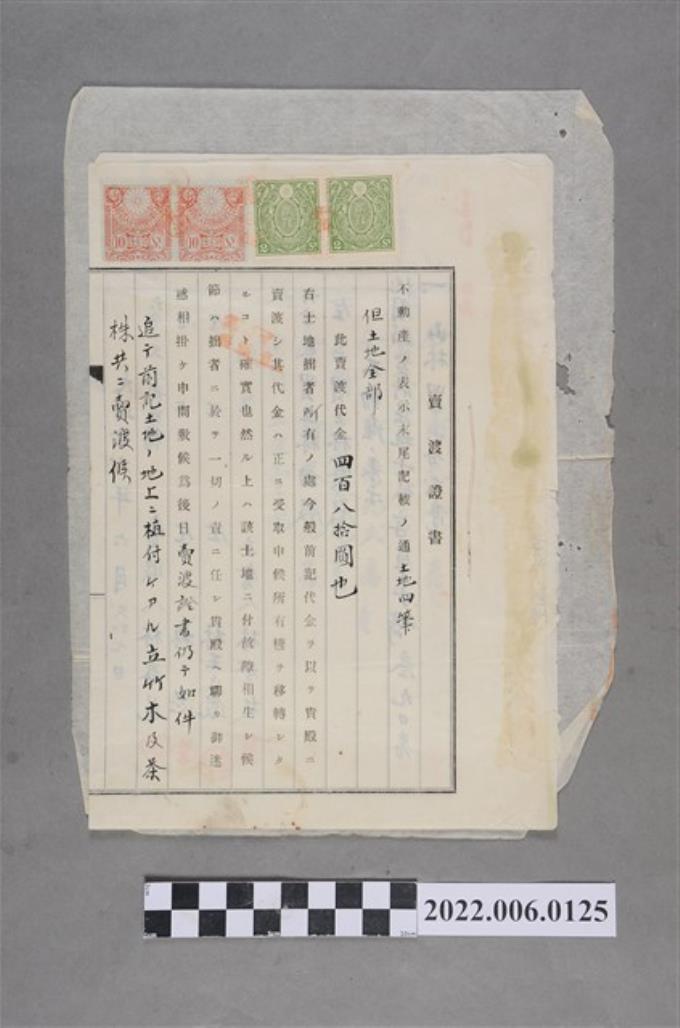 賣渡證書
不動產ノ表示末尾記載ノ通土地四筆
但土地全部
此賣渡代金四百八拾圓也
右土地拙者所有ノ處今般前記代金ヲ以テ貴殿ニ
賣渡シ其代金ハ正ニ受取申候所有權ヲ移轉シタ
ルコト確實也然ル上ハ該土地ニ付故障相生シ候
節ハ拙者ニ於テ一切ノ責ニ任シ貴殿ヘ聊カ御迷
惑相掛ケ申間敷候爲後日賣渡證書仍テ如件
追テ前記土地ノ地上ニ植付ケアル立竹木及茶
株共ニ賣渡候
10
10
2
2
2022.006.0125